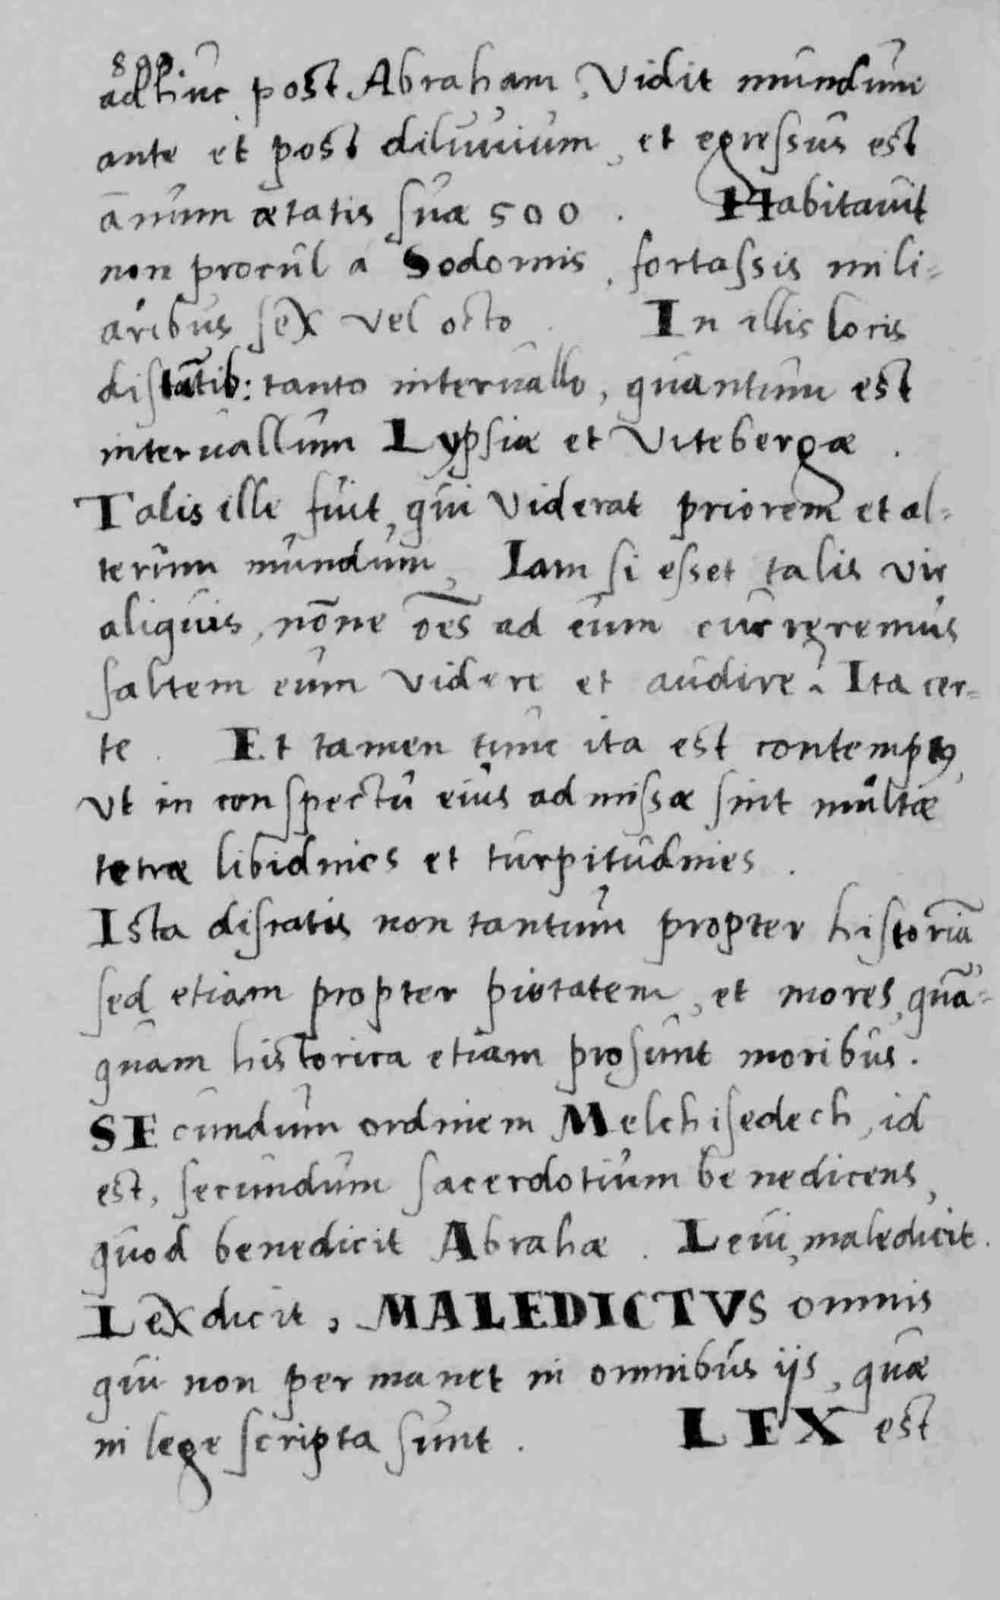 800
adhuc post Abraham, Vidit mundum
ante et post diluuium, et egressus est
ānum ætatis suæ 500. Habitauit
non procul a Sodomis, fortassis mili-
aribus sex vel octo. In illis locis
distātib: tanto interuallo, quantum est
interuallum Lypsiæ et Vitebergæ.
Talis ille fuit, qui viderat priorem et al-
terum mundum, Iam si esset talis vir
aliquis, nōne oēs ad eum curreremus
saltem eum videre et audire? Ita cer-
te. Et tamen tunc ita est contemptꝰ,
Vt in conspectu eius admissæ sint multæ
tetræ libidines et turpitudines.
Ista discatis non tantum propter historiā
sed etiam propter pietatem, et mores, quā-
quam historica etiam prosunt moribus.
SEcundum ordinem Melchisedech, id
est, secundum sacerdotium benedicens,
quod benedicit Abrahæ. Leui, maledicit.
Lex dicit, MALEDICTVS omnis
qui non permanet in omnibus iis, quæ
in lege scripta sunt. LEX est